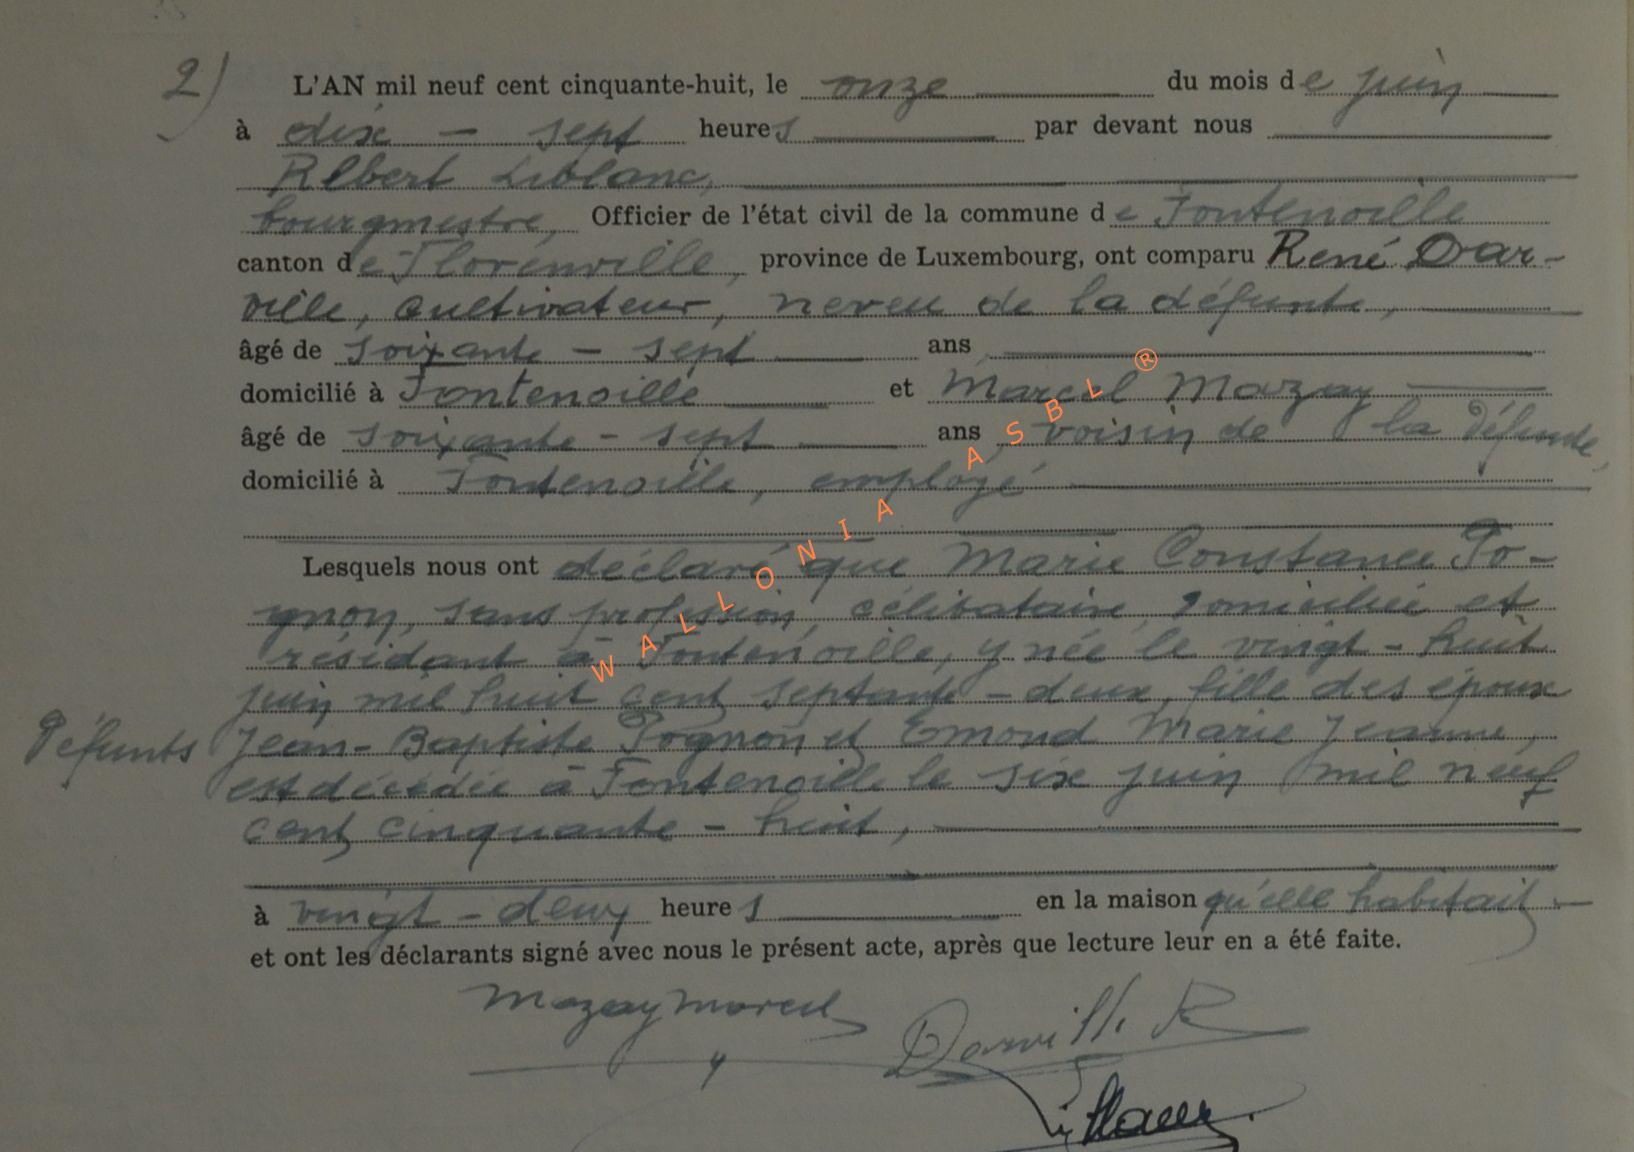 2) L'AN mil neuf cent cinquante-huit, le onze du mois de juin
à dix-sept heures par devant nous
Albert Liblanc,
bourgmestre, Officier de l'état civil de la commune de Fontenoille
canton de Florenville, province de Luxembourg, ont comparu René Dar-
ville, cultivateur, neveu de la défunte,
âgé de soixante-sept ans
domicilié à Fontenoille et Marcel Mazay
âgé de soixante-sept ans, voisin de la défunte,
domicilié à Fontenoille, employé
Lesquels nous ont déclaré que Marie Constance Po-
gnon, sans profession, célibataire, domiciliée et
résidant à Fontenoille, y née le vingt-huit
juin mil huit cent septante-deux, fille des époux
défunts Jean-Baptiste Pognon et Emond Marie Jeanne,
est décédée à Fontenoille le six juin mil neuf
cent cinquante-huit,
à vingt-deux heures en la maison qu'elle habitait
et ont les déclarants signé avec nous le présent acte, après que lecture leur en a été faite.
Mazay Marcel
Darville R
WALLONIA ASBL ®